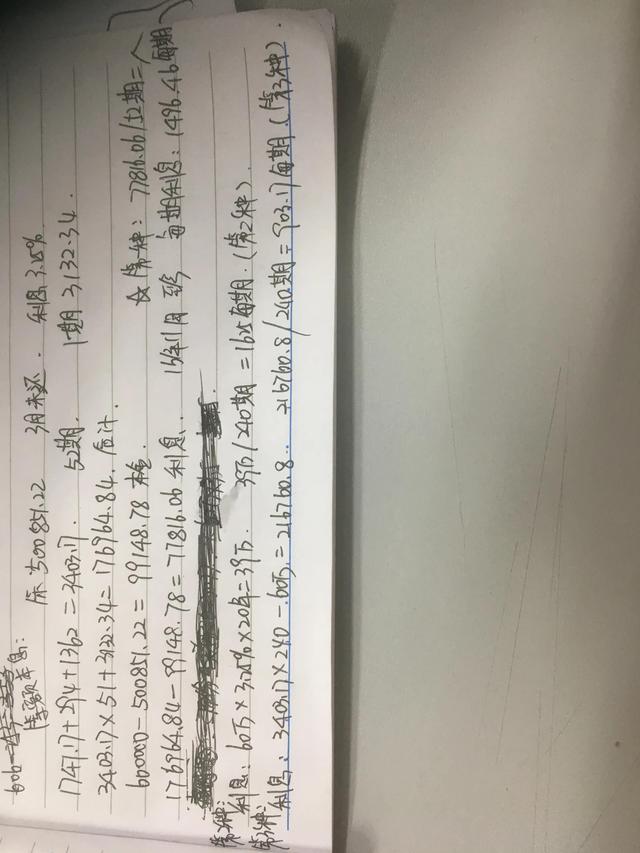 等额本息: 余500851.22 3月未还. 利息3.25%
1747.17+294+1362=3403.17. 52期. 1期 3132.34.
3403.17×51+3132.34=176964.84. 合计.
600000-500851.22=99148.78 本金. ☆第一种: 77816.06/52期=
176964.84-99148.78=77816.06 利息. 15年11月 至今 每期利息: 1496.46每期
第2种: 利息: 60万×3.25%×20年=39万. 39万/240期=1625每期.(第2种).
第3种: 利息: 3403.17×240-60万=216760.8. 216760.8/240期=903.17每期.(第3种).